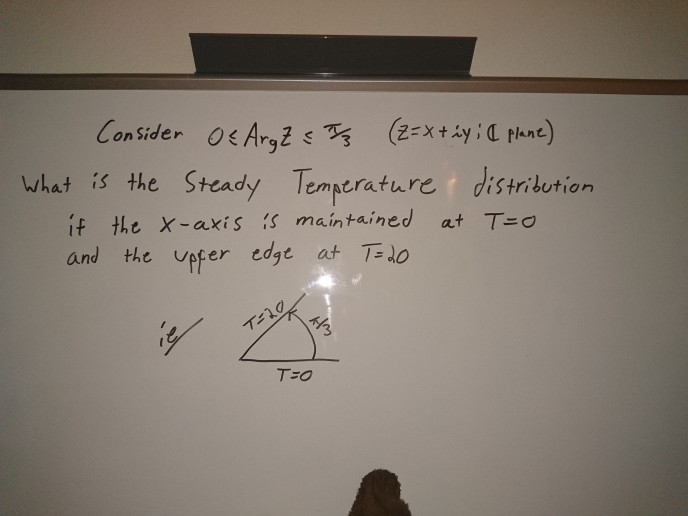 Consider 0 ≤ Arg Z ≤ π/3 (Z=x+iy; ℂ plane)
What is the Steady Temperature distribution
if the x-axis is maintained at T=0
and the upper edge at T=20
ie/
T=20
π/3
T=0